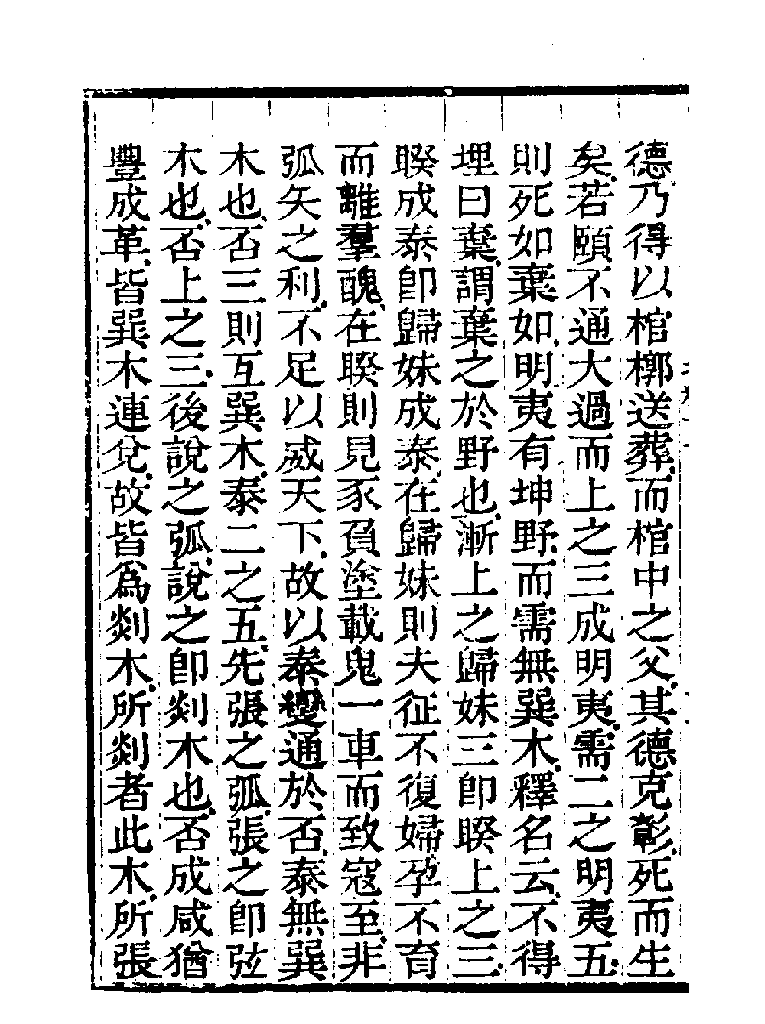 德乃得以棺槨送葬而棺中之父其德克彰死而生
矣若頤不通大過而上之三成明夷需二之明夷五
則死如棄如明夷有坤野而需無巽木釋名云不得
埋曰棄謂棄之於野也漸上之歸妹三卽睽上之三
睽成泰卽歸妹成泰在歸妹則夫征不復婦孕不育
而離羣醜在睽則見豕負塗載鬼一車而致寇至非
弧矢之利不足以威天下故以泰變通於否泰無巽
木也否三則互巽木泰二之五先張之弧張之卽弦
木也否上之三後說之弧說之卽剡木也否成咸猶
豐成革皆巽木連兌故皆爲剡木所剡者此木所張